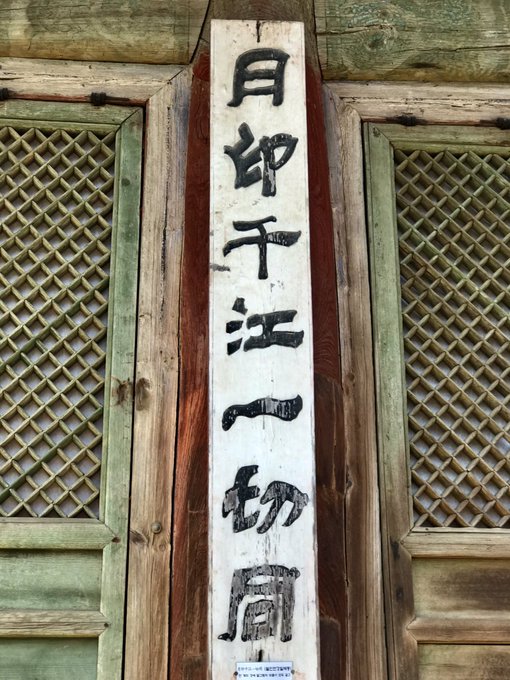 月印千江一切同